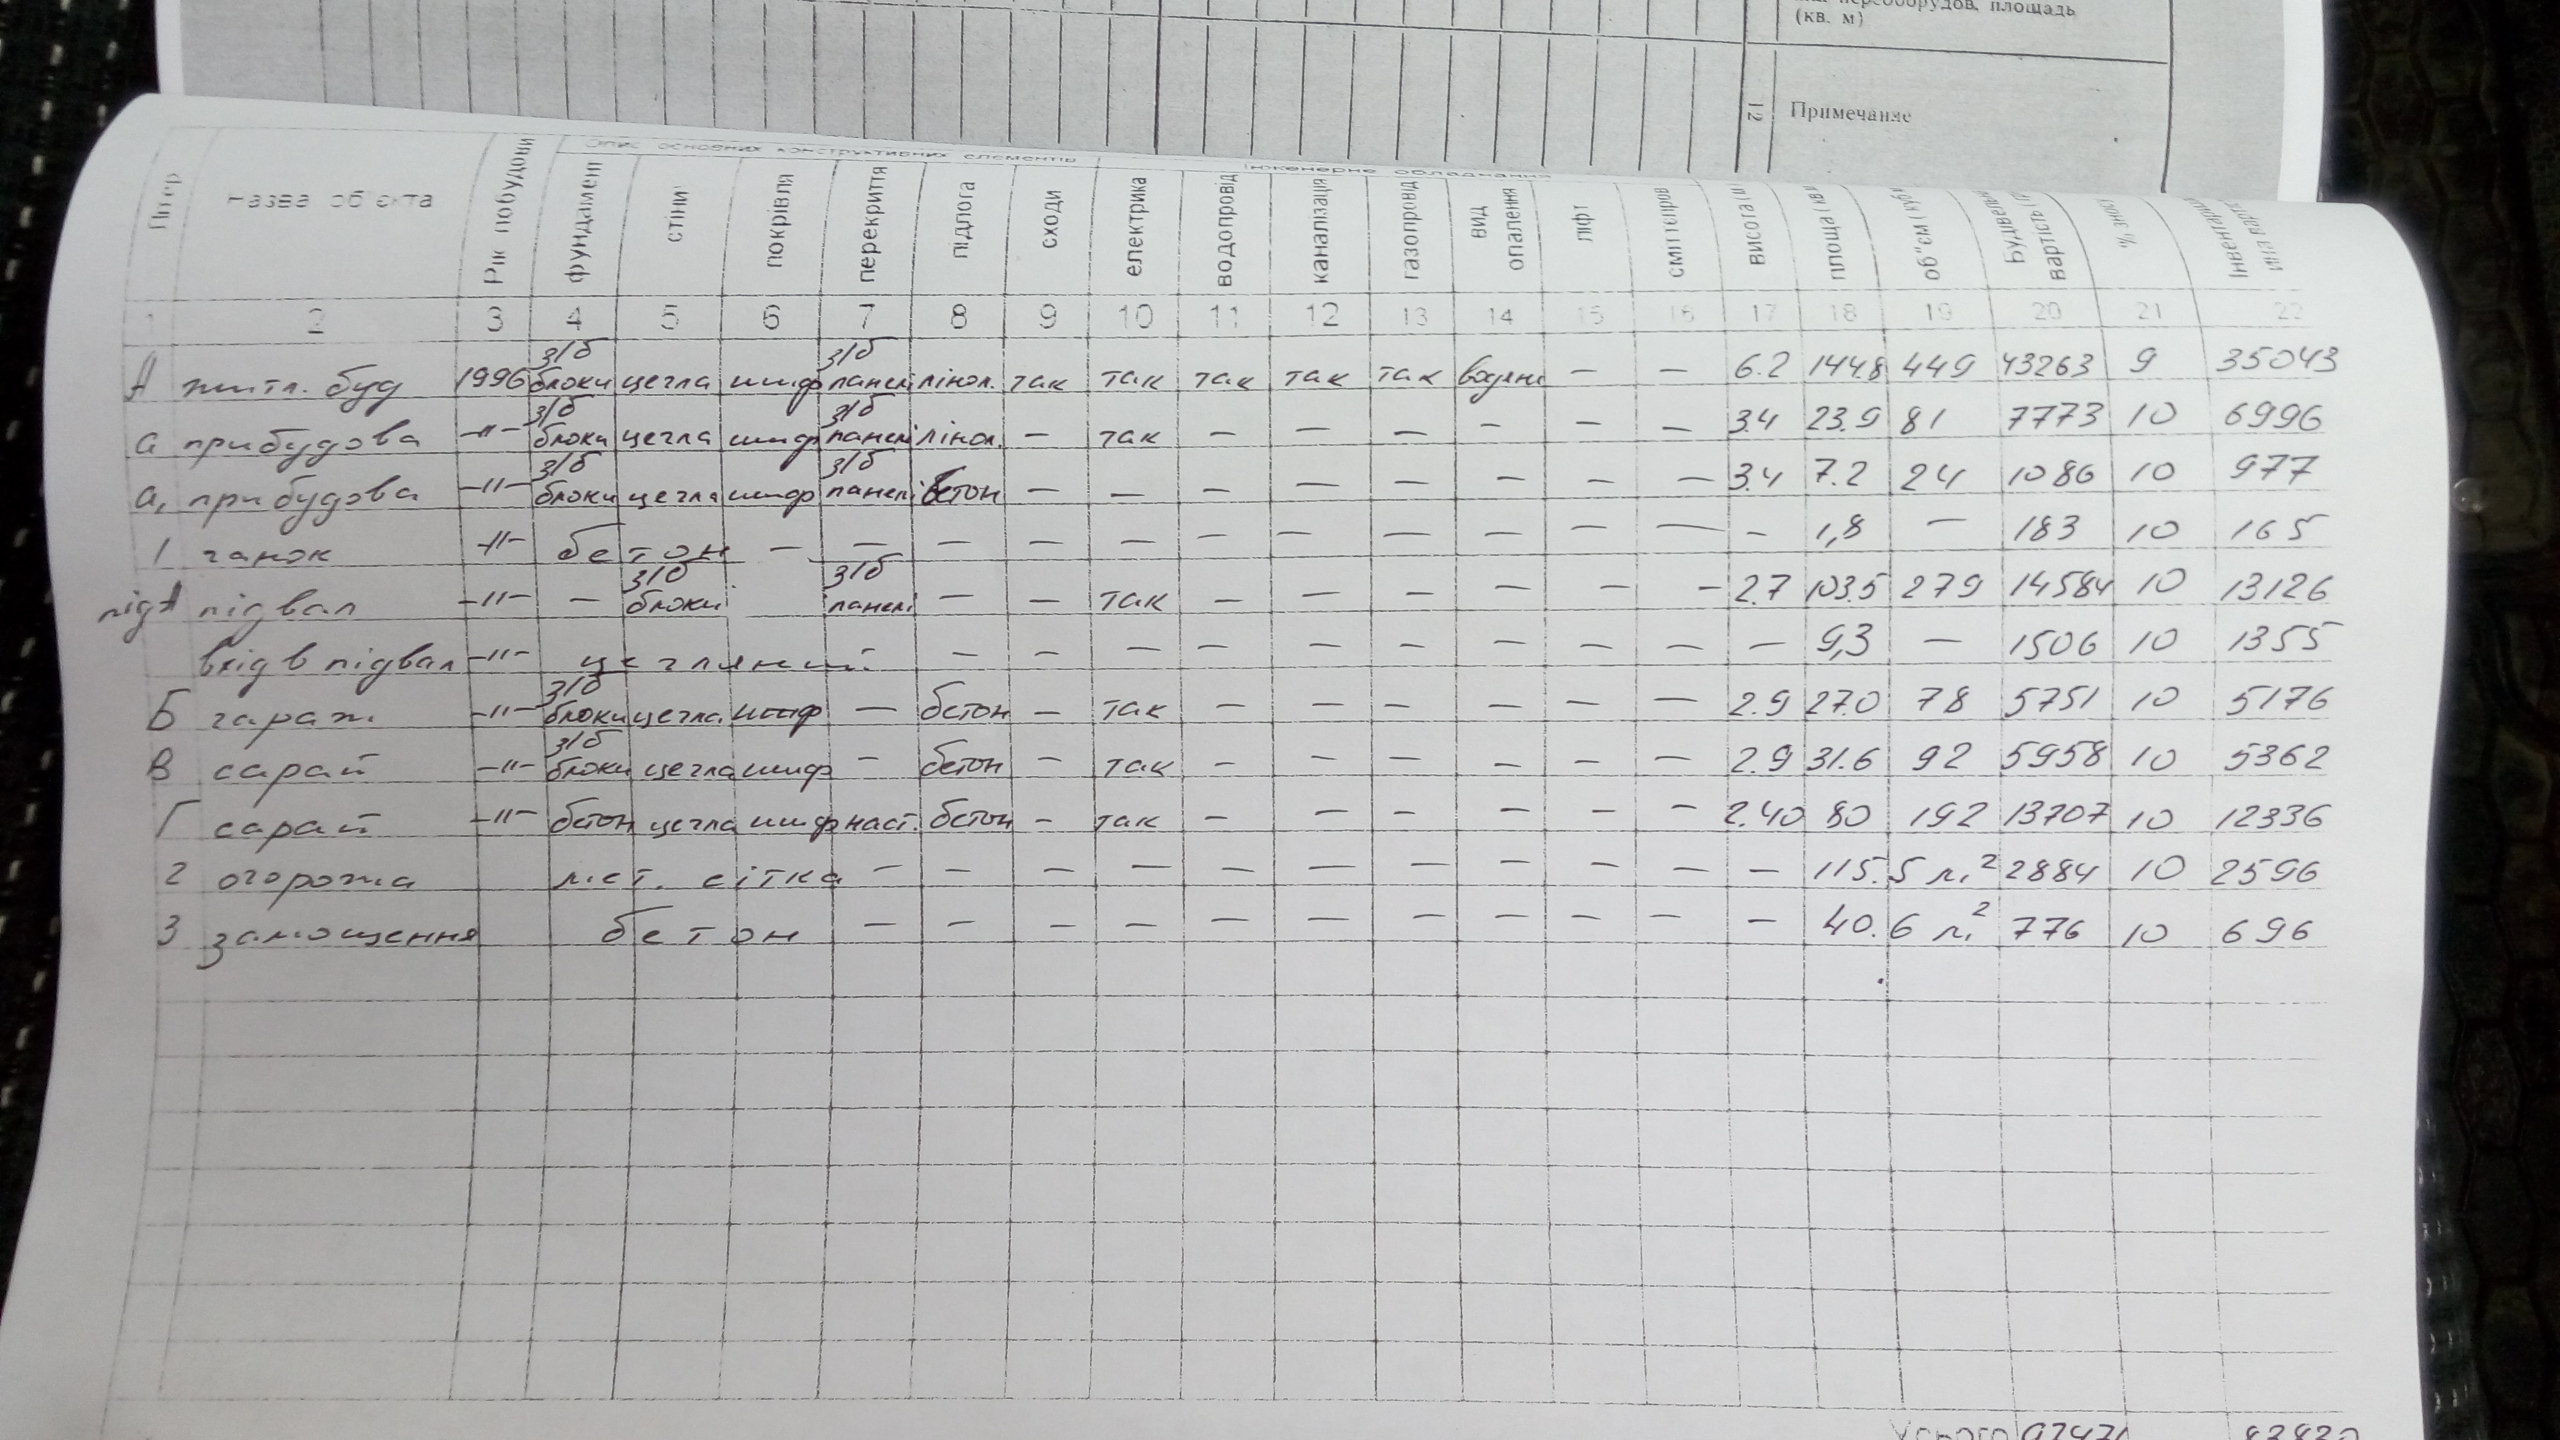 площадь
(кв. м)
12 Примечание
Опис основних конструктивних елементів Інженерне обладнання
Літер Назва об'єкта Рік побудови фундамент стіни покрівля перекриття підлога сходи електрика водопровід каналізація газопровід вид опалення ліфт висота площа об"єм вартість
1 2 3 4 5 6 7 8 9 10 11 12 13 14 15 16 17 18 19 20 21 22
А житл. буд 1996 з/б блоки цегла шиф з/б панелі лінол. так так так так так водяне — — 6.2 144.8 449 43263 9 35043
а прибудова -"- з/б блоки цегла шиф з/б панелі лінол. — так — — — — — — 3.4 23.9 81 7773 10 6996
а₁ прибудова -"- з/б блоки цегла шиф з/б панелі бетон — — — — — — — — 3.4 7.2 24 1086 10 977
1 ганок -"- бетон — — — — — — — — — — — — 1,8 — 183 10 165
підА підвал -"- — з/б блоки з/б панелі — — так — — — — — — 2.7 103.5 279 14584 10 13126
вхід в підвал -"- цегляний — — — — — — — — — — 9,3 — 1506 10 1355
Б гараж -"- з/б блоки цегла шиф — бетон — так — — — — — — 2.9 27.0 78 5751 10 5176
В сарай -"- з/б блоки цегла шиф — бетон — так — — — — — — 2.9 31.6 92 5958 10 5362
Г сарай -"- бетон цегла шиф наст. бетон — так — — — — — — 2.40 80 192 13707 10 12336
2 огорожа мет. сітка — — — — — — — — — — — 115.5 м² 2884 10 2596
3 замощення бетон — — — — — — — — — — — 40.6 м² 776 10 696
Усього